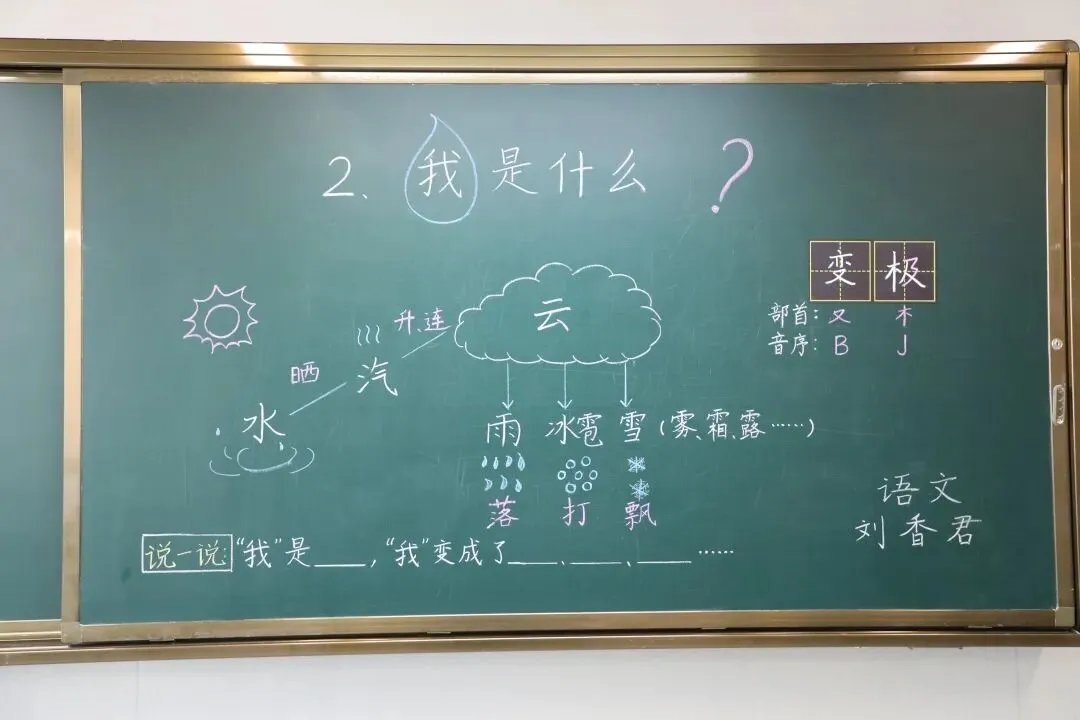 2、我是什么?
变极
部首：又 木
音序：B J
云
升、连
汽
晒
水
雨 冰雹 雪(雾、霜、露……)
落 打 飘
语文
刘香君
说一说:“我”是____,“我”变成了____、____、____……